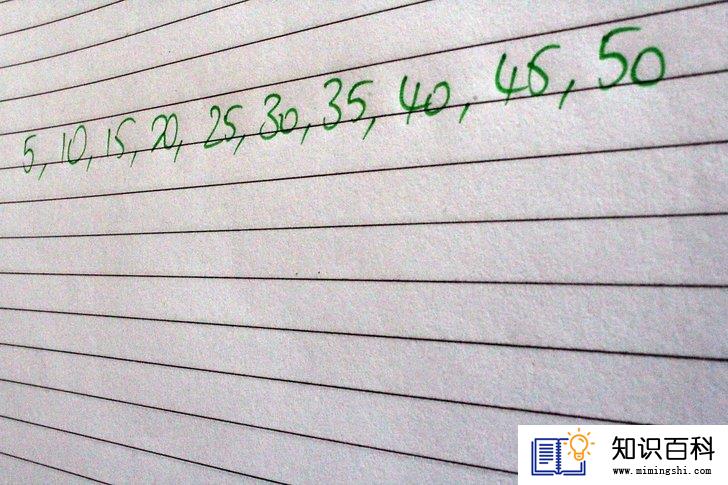 5, 10, 15, 20, 25, 30, 35, 40, 45, 50
知识百科
www.mimingshi.com